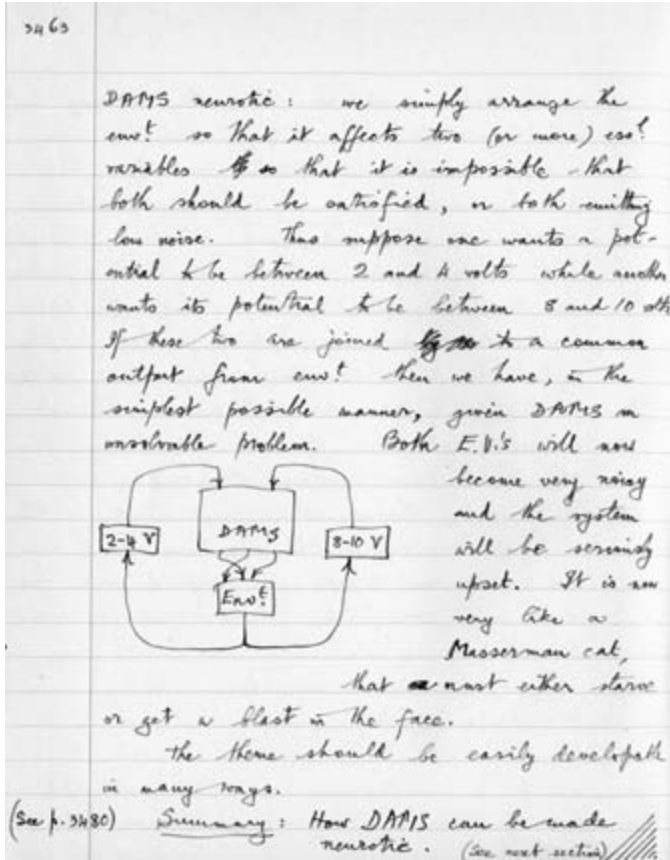 3463
DAMS neurotic: we simply arrange the
envt. so that it affects two (or more) essl.
variables so that it is impossible that
both should be satisfied, or both emitting
low noise. Thus suppose one wants a pot-
ential to be between 2 and 4 volts while another
wants its potential to be between 8 and 10 volts
If these two are joined to a common
output from envt. then we have, in the
simplest possible manner, given DAMS an
unsolvable problem. Both E.V.'s will now
become very noisy
and the system
will be seriously
upset. It is now
very like a
Masserman cat,
that must either starve
or get a blast in the face.
2-4 V
DAMS
8-10 V
Envt.
The theme should be easily developable
in many ways.
(See p. 3480) Summary: How DAMS can be made
neurotic. (See next section)